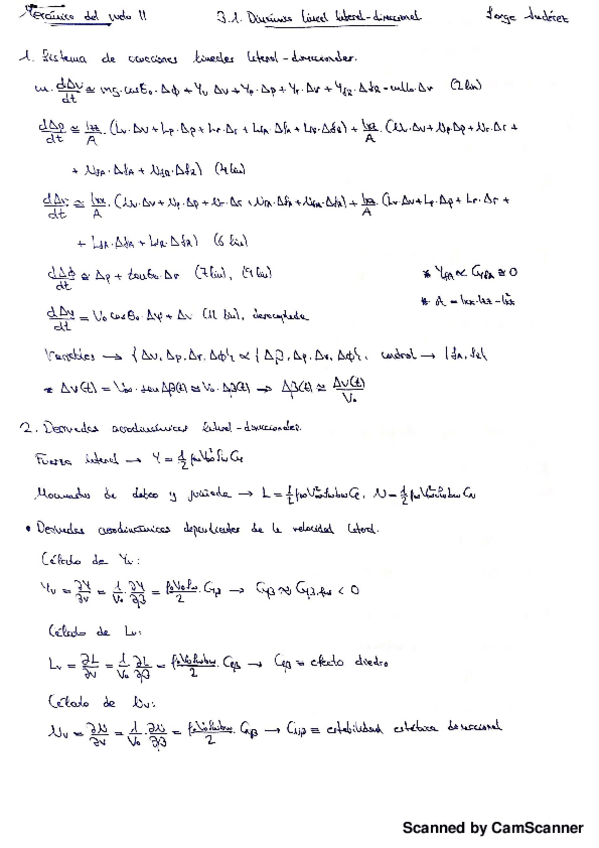 Mecánica del vuelo II 3.1. Dinámica lineal lateral-direccional Jorge
1. Sistema de ecuaciones lineales lateral-direccional.
m·dΔv/dt ≃ mg·cosθ₀·Δφ + Yv·Δv + Yp·Δp + Yr·Δr + YδR·ΔδR - mu₀·Δr (2 lin)
dΔp/dt ≃ Izz/A·(Lv·Δv + Lp·Δp + Lr·Δr + LδA·ΔδA + LδR·ΔδR) + Ixz/A·(Nv·Δv + Np·Δp + Nr·Δr +
+ NδA·ΔδA + NδR·ΔδR) (4 lin)
dΔr/dt ≃ Ixx/A·(Nv·Δv + Np·Δp + Nr·Δr + NδA·ΔδA + NδR·ΔδR) + Ixz/A·(Lv·Δv + Lp·Δp + Lr·Δr +
+ LδA·ΔδA + LδR·ΔδR) (6 lin)
dΔφ/dt ≃ Δp + tanθ₀·Δr (7 lin), (9 lin) * YδA ∝ CYδA ≃ 0
* A = Ixx·Izz - Ixz²
= V₀ cosθ₀·Δψ + Δv (11 lin), desacoplada
Variables → {Δv, Δp, Δr, Δφ} ∝ {Δβ, Δp, Δr, Δφ}, control → {δA, δR}
* Δv(t) = V∞·sen Δβ(t) ≃ V₀·Δβ(t) → Δβ(t) ≃ Δv(t)/V₀
2. Derivadas aerodinámicas lateral-direccionales.
Fuerza lateral → Y = ½ρ∞V∞²SwCY
Momentos de balance y guiñada → L = ½ρ∞V∞²SwbwCl, N = ½ρ∞V∞²SwbwCn
• Derivadas aerodinámicas dependientes de la velocidad lateral.
Cálculo de Yv:
Yv = ∂Y/∂v = 1/V₀·∂Y/∂β = ρ₀V₀Sw/2·CYβ → CYβ ≈ CYβ,fus < 0
Cálculo de Lv:
Lv = ∂L/∂v = 1/V₀·∂L/∂β = ρ₀V₀Swbw/2·Clβ → Clβ ≡ efecto diedro
Cálculo de Nv:
Nv = ∂N/∂v = 1/V₀·∂N/∂β = ρ₀V₀Swbw/2·Cnβ → Cnβ ≡ estabilidad estática direccional
Scanned by CamScanner